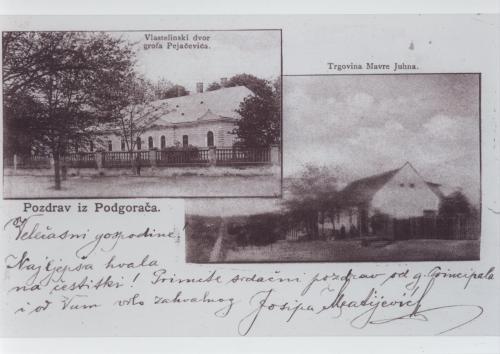 Vlastelinski dvor
grofa Pejačevića.
Trgovina Mavre Juhna.
Pozdrav iz Podgorača.
Velečasni gospodine!
Najljepša hvala
na čestitki! Primite srdačni pozdrav od g. Principala
i od Vam vrlo zahvalnog Josipa